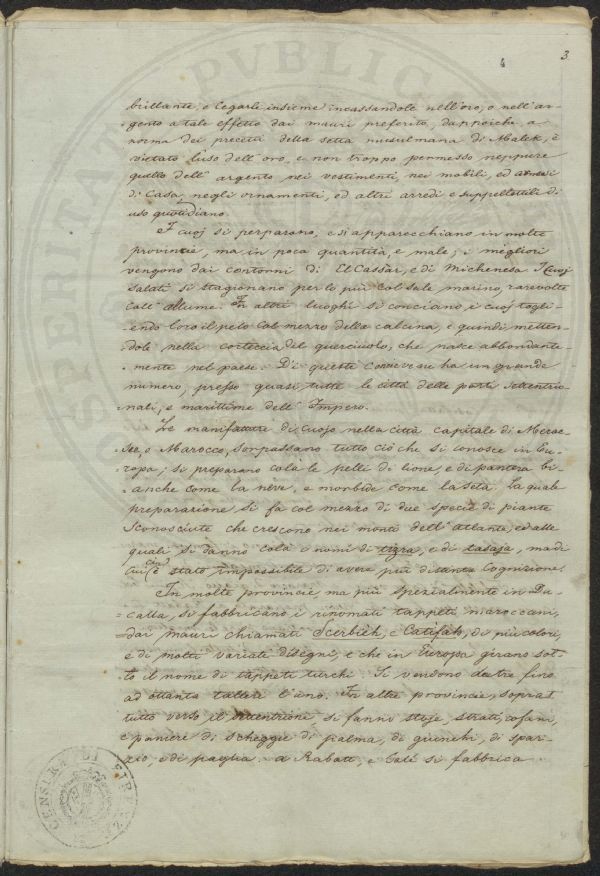 3
4
brillante, e legarle insieme incassandole nell'oro, o nell'ar-
=gento a tale effetto dai mauri preferito, dappoichè a
norma dei precetti della setta musulmana di Malek, è
vietato l'uso dell'oro, e non troppo permesso neppure
quello dell'argento nei vestimenti, nei mobili, ed arnesi
di Casa, negli ornamenti, ed altri arredi e suppellettili di
uso quotidiano.
I cuoj si perparano, e si apparecchiano in molte
provincie, ma in poca quantità, e male; i migliori
vengono dai contorni di El Cassar, e di Michenesa I cuoj
salati si stagionano per lo più col Sale marino, rare volte
coll'allume. In altri luoghi si conciano i cuoj togli-
=endo loro il pelo col mezzo della calcina, e quindi metten-
=dole nella corteccia del querciuolo, che nasce abbondante-
=mente nel paese. Di queste concie se ha un grande
numero, presso quasi tutte le città delle parti settentrio-
=nali, e marittime dell'Impero.
Le manifatture di cuojo nella città capitale di
o Marocco, sorpassano tutto ciò che si conosce in Eu-
=ropa; si preparano colà le pelli di lione, e di pantera bi-
=anche come la nêve, e morbide come la seta. La quale
preparazione si fa col mezzo di due specie di piante
sconosciute che crescono nei monti dell'atlante, ed alle
quali si danno colà i nomi di tizra, e di tasaja, ma di
cui ci è stato impossibile di avere più distinta Cognizione.
In molte provincie, ma più spezialmente in Du-
=calla, si fabbricano i rinomati tappeti maroccani,
=dai mauri chiamati Scerbieh, e Catifah, di più colori,
e di molti variati disegni, e che in Europa girano sot-
=to il nome di tappeti turchi. Si vendono da tre fino
ad ottanta talleri l'uno. In altre provincie, soprat
tutto verso il settentrione, si fanno stoje, strati, cofani,
e paniere di schegge di palma, di giunchi, di spar-
=zio, e di paglia. a Rabatt, e Salè si fabbrica
CENSURA DI FIRENZE